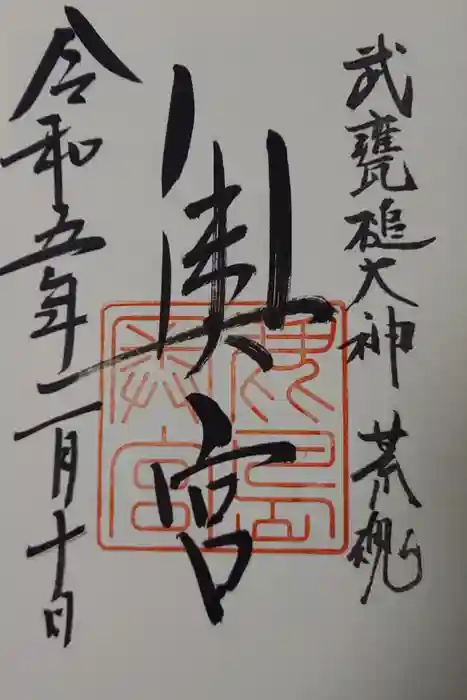 武甕槌大神 荒魂
奥宮
令和五年二月十日
鹿島奥宮